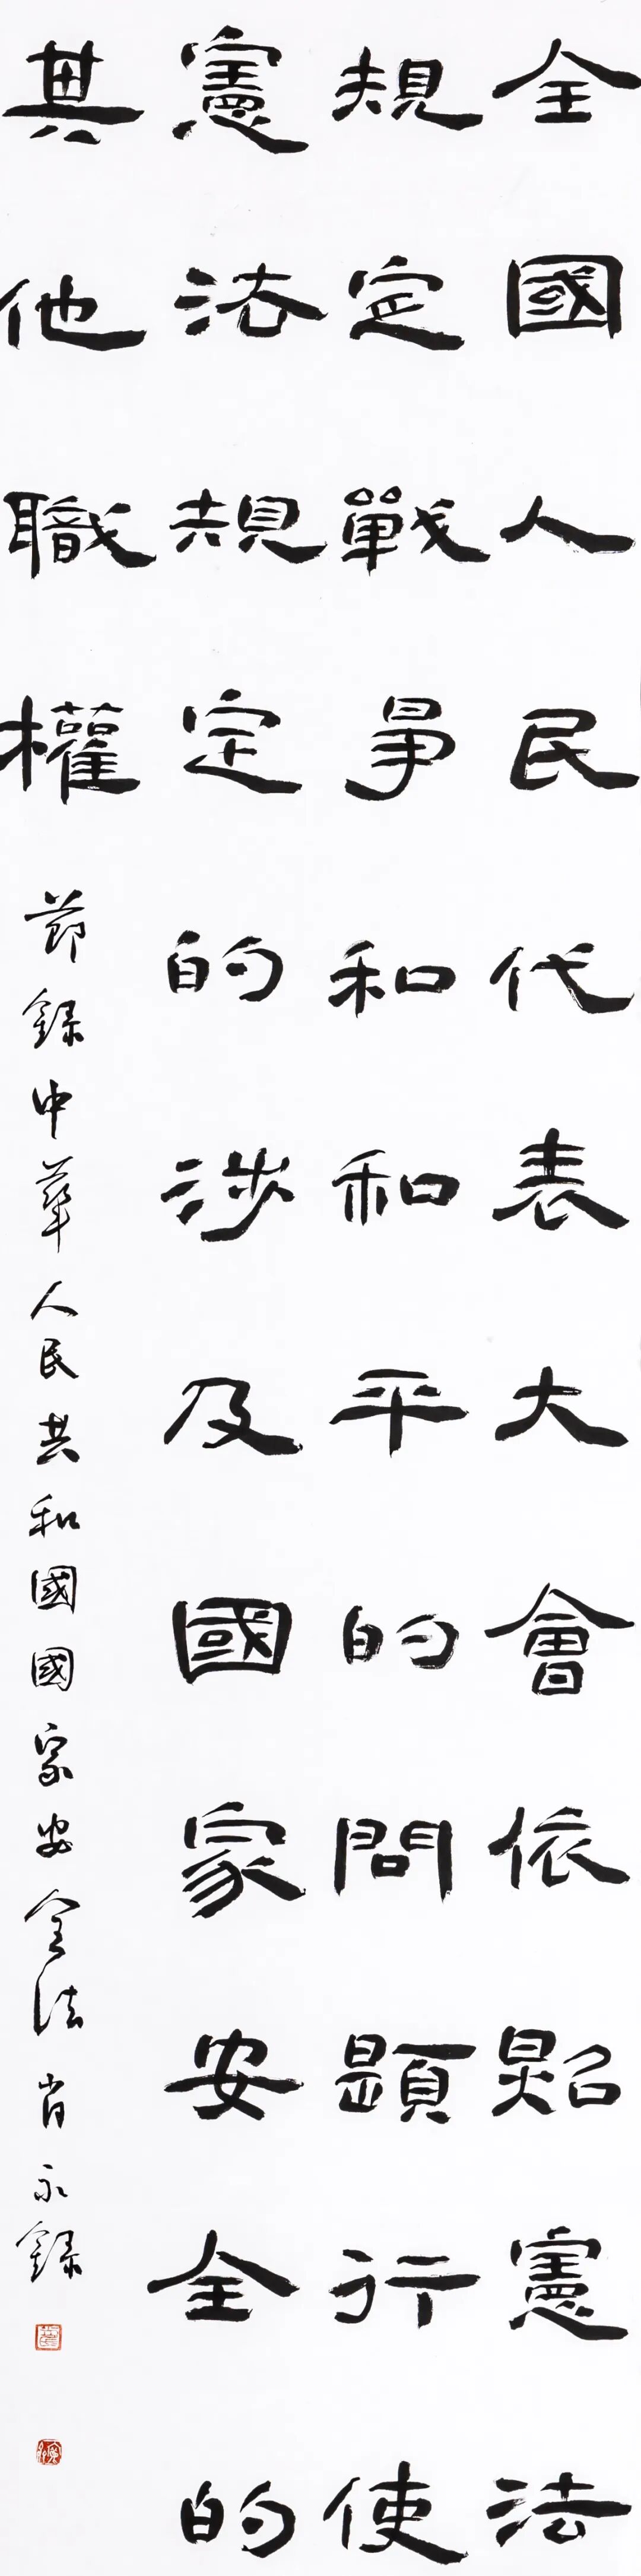 全國人民代表大會依照憲法
規定戰爭和和平的問題行使
憲法規定的涉及國家安全的
其他職權
節錄中華人民共和國國家安全法肖永錄